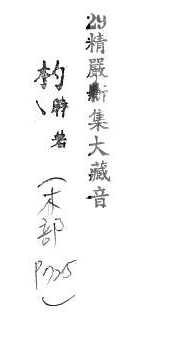 29精嚴新集大藏音
杓時若
(木部
P725)